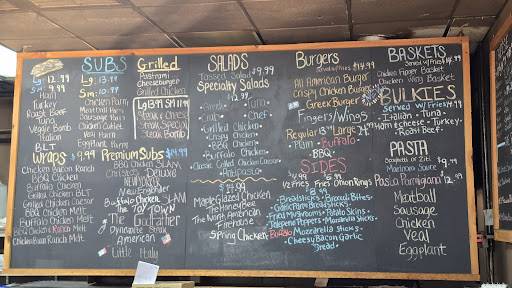 SUBS
Lg: 12.99
Sm: 9.99
Ham
Turkey
Roast Beef
Tuna
Veggie Bomb
Italian
BLT
Lg: 13.99
Sm: 10.99
Chicken Parm
Meatball Parm
Sausage Parm
Chicken Cutlet
Veal Parm
Eggplant Parm
Grilled
Pastrami
Cheeseburger
Grilled Chicken
Steak & Cheese
Steak Special
Steak Bomb
Wraps $9.99
Chicken Bacon Ranch
BBQ Chicken
Buffalo Chicken
Grilled Chicken BLT
Grilled Chicken Caesar
BBQ Chicken Melt
Buffalo Chicken Melt
BBQ Chicken Ranch Melt
Chicken Bacon Ranch Melt
Premium Subs $14.99
BBQ Chicken SLAM
DELUXE
NEW YORKER
New Englander
Buffalo Chicken SLAM
The TOY TOWN
The Godfather
Dynamite Steak
American
Little Italy
SALADS
Tossed Salad $9.99
Specialty Salads
$12.99
Greek
Tuna
Crab
Chef
Grilled Chicken
Chicken
BBQ Chicken
Buffalo Chicken
Classic Grilled Chicken Caesar
Antipasto
$14.99
Maple Glazed Chicken
Mediterranean
The North American
Firehouse
Spring Chicken
Burgers
Served w/Fries $14.99
All American Burger
Crispy Chicken Burger
Greek Burger
Fingers/Wings
Plain
Buffalo
BBQ
SIDES
Fries
Onion Rings
Breadsticks
Broccoli Bites
Garlic Parm Breadsticks
Fried Mushrooms
Potato Skins
Jalapeno Poppers
Mozzarella Sticks
Buffalo Mozzarella Sticks
Cheesy Bacon Garlic
Bread
BASKETS
Served w/Fries
Chicken Finger Basket
Chicken Wing Basket
BULKIES
Served w/Fries
Italian
Tuna
Ham & Cheese
Turkey
Roast Beef
PASTA
Spaghetti or Ziti
Marinara Sauce
$9.99
Pasta Parmigiana $12.99
Meatball
Sausage
Chicken
Veal
Eggplant